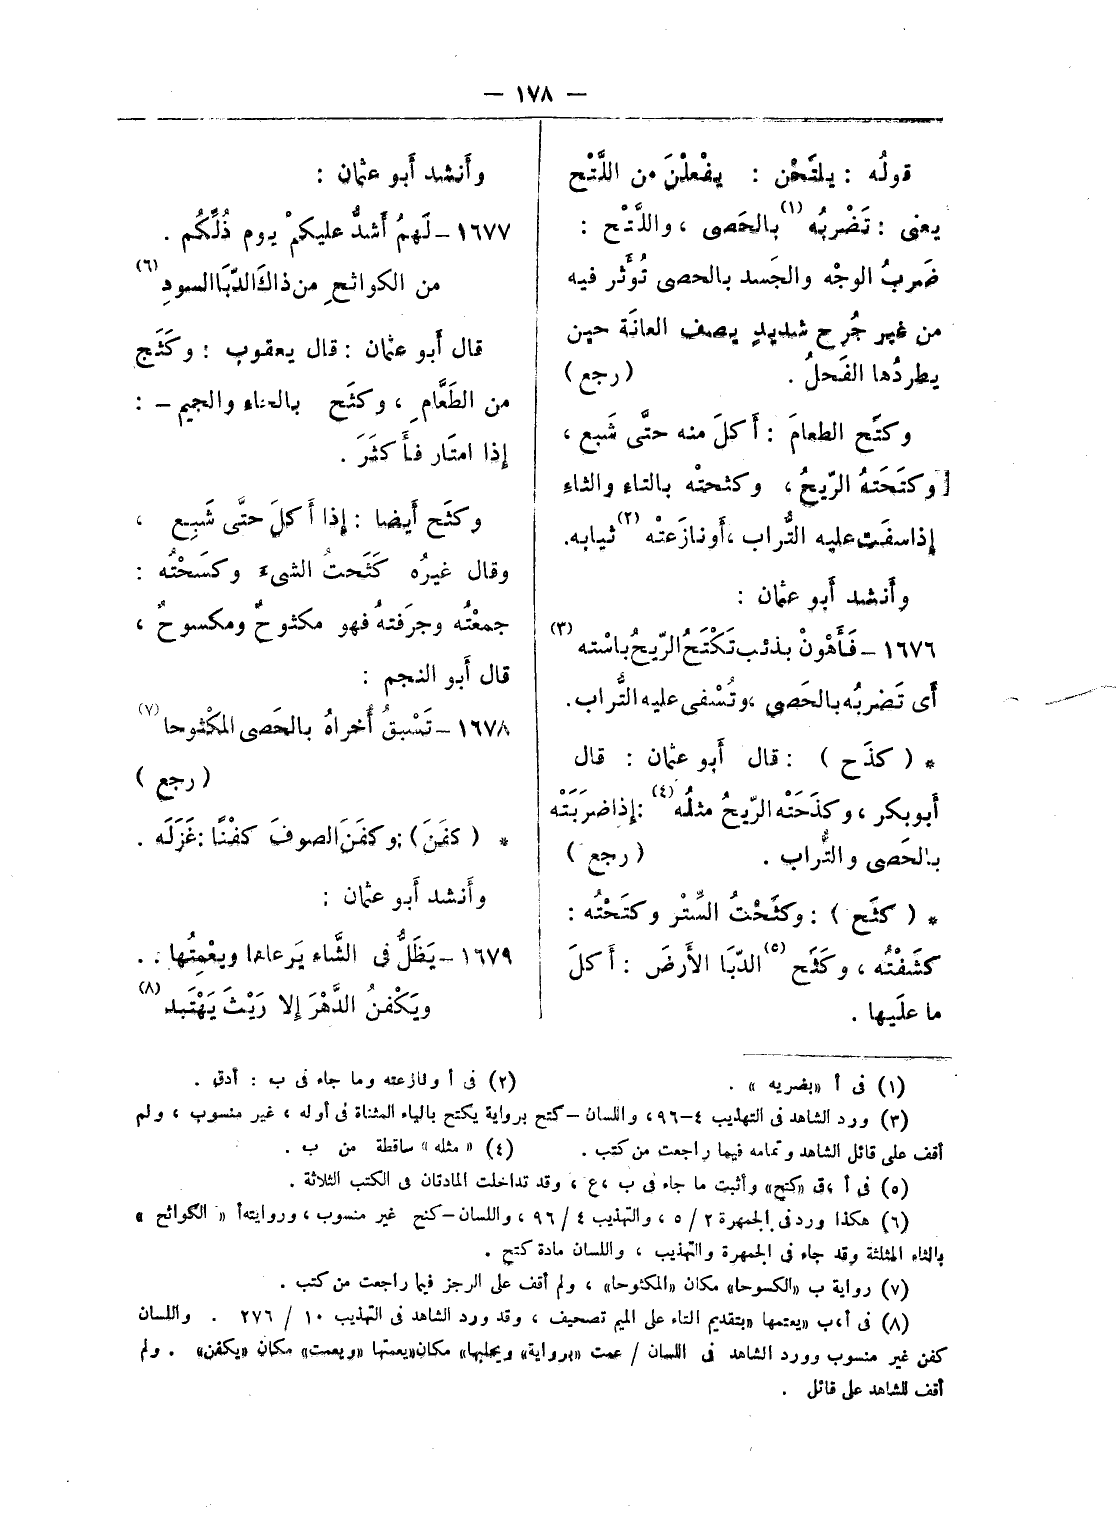 — ١٧٨ —
قولُه : يلتَحْن : يفْعلْنَ من اللَّتْح
يعنى : تَضْربُه (١) بالحَصى ، واللَّتْح :
ضَربُ الوجْه والجَسد بالحصى تُؤَثر فيه
من غير جُرح شديدٍ يصف العانَة حين
يطردُها الفَحلُ . (رجع)
وكتَح الطعامَ : أَكلَ منه حتَّى شَبع ،
[وكتَحَتهُ الرّيحُ ، وكثحتْه بالتاء والثاءِ
إذا سفَت عليه التُّراب ، أَو نازَعتْه (٢) ثيابه.
وأَنشد أَبو عثمان :
١٦٧٦ – فَأَهْونْ بذئب تَكْتَحُ الرّيحُ باسْته (٣)
أَى تَضربُه بالحَصى ، وتُسْفى عليه التُّراب.
* ( كذَح ) : قال أَبو عثمان : قال
أَبوبكر ، وكذَحَتْه الرّيحُ مثلُه (٤) : إذا ضرَبَتْه
بالحَصى والتُّراب . (رجع)
* ( كثح ) : وكثَحْتُ السِّتْر وكتَحْتُه :
كشَفْتُه ، وكَثَح (٥) الدّبَا الأَرضَ : أَكلَ
ما علَيها .
وأَنشد أَبو عثمان :
١٦٧٧ – لَهمُ أَشدُّ عليكمْ يوم ذُلِّكُم .
من الكوائحِ من ذاكَ الدّبَا السودِ (٦)
قال أَبو عثمان : قال يعقوب : وكَثَج
من الطَعَّامِ ، وكثَح بالحاء والجيم – :
إذا امتَار فأَكثَرَ .
وكثَح أَيضا : إذا أَكلَ حتَّى شَبِع ،
وقال غيرُه كَثَحتُ الشىء وكسَحْتُه :
جمعْتُه وجرَفتهُ فهو مكثوحٌ ومكسوحٌ ،
قال أَبو النجم :
١٦٧٨ – تَسْبقُ أُخراهُ بالحَصى المكْثوحا (٧)
(رجع)
* ( كفَنَ ) : وكفَنَ الصوفَ كفْنًا : غَزَلَه .
وأَنشد أَبو عثمان :
١٦٧٩ – يَظَلُّ فى الشَّاء يَرعاها ويعْمِتُها . .
ويَكْفنُ الدَّهْرَ إلا رَيْثَ يَهْتَبد (٨)
(١) فى أ «بضربه » .
(٢) فى أ ونازعته وما جاء فى ب : أدق .
(٣) ورد الشاهد فى التهذيب ٤–٩٦، واللسان –كتح برواية يكتح بالياء المثناة فى أوله ، غير منسوب ، ولم
أقف على قائل الشاهد وتمامه فيما راجعت من كتب .
(٤) « مثله » ساقطة من ب .
(٥) فى أ ،ق «كتح» وأثبت ما جاء فى ب ،ع ، وقد تداخلت المادتان فى الكتب الثلاثة .
(٦) هكذا ورد فى الجمهرة ٢ / ٥ ، والتهذيب ٤ / ٩٦ ، واللسان –كتح غير منسوب ، وروايته أ « الكوائح »
بالثاء المثلثة وقد جاء فى الجمهرة والتهذيب ، واللسان مادة كتح .
(٧) رواية ب «الكسوحا» مكان «المكثوحا» ، ولم أقف على الرجز فيما راجعت من كتب .
(٨) فى أ ،ب «يعتمها »بتقديم التاء على الميم تصحيف ، وقد ورد الشاهد فى التهذيب ١٠ / ٢٧٦ . واللسان
كفن غير منسوب وورد الشاهد فى اللسان / عمت «برواية» ويحلبها» مكان«يعمتها «ويعمت» مكان «يكفن» . ولم
أقف للشاهد على قائل .